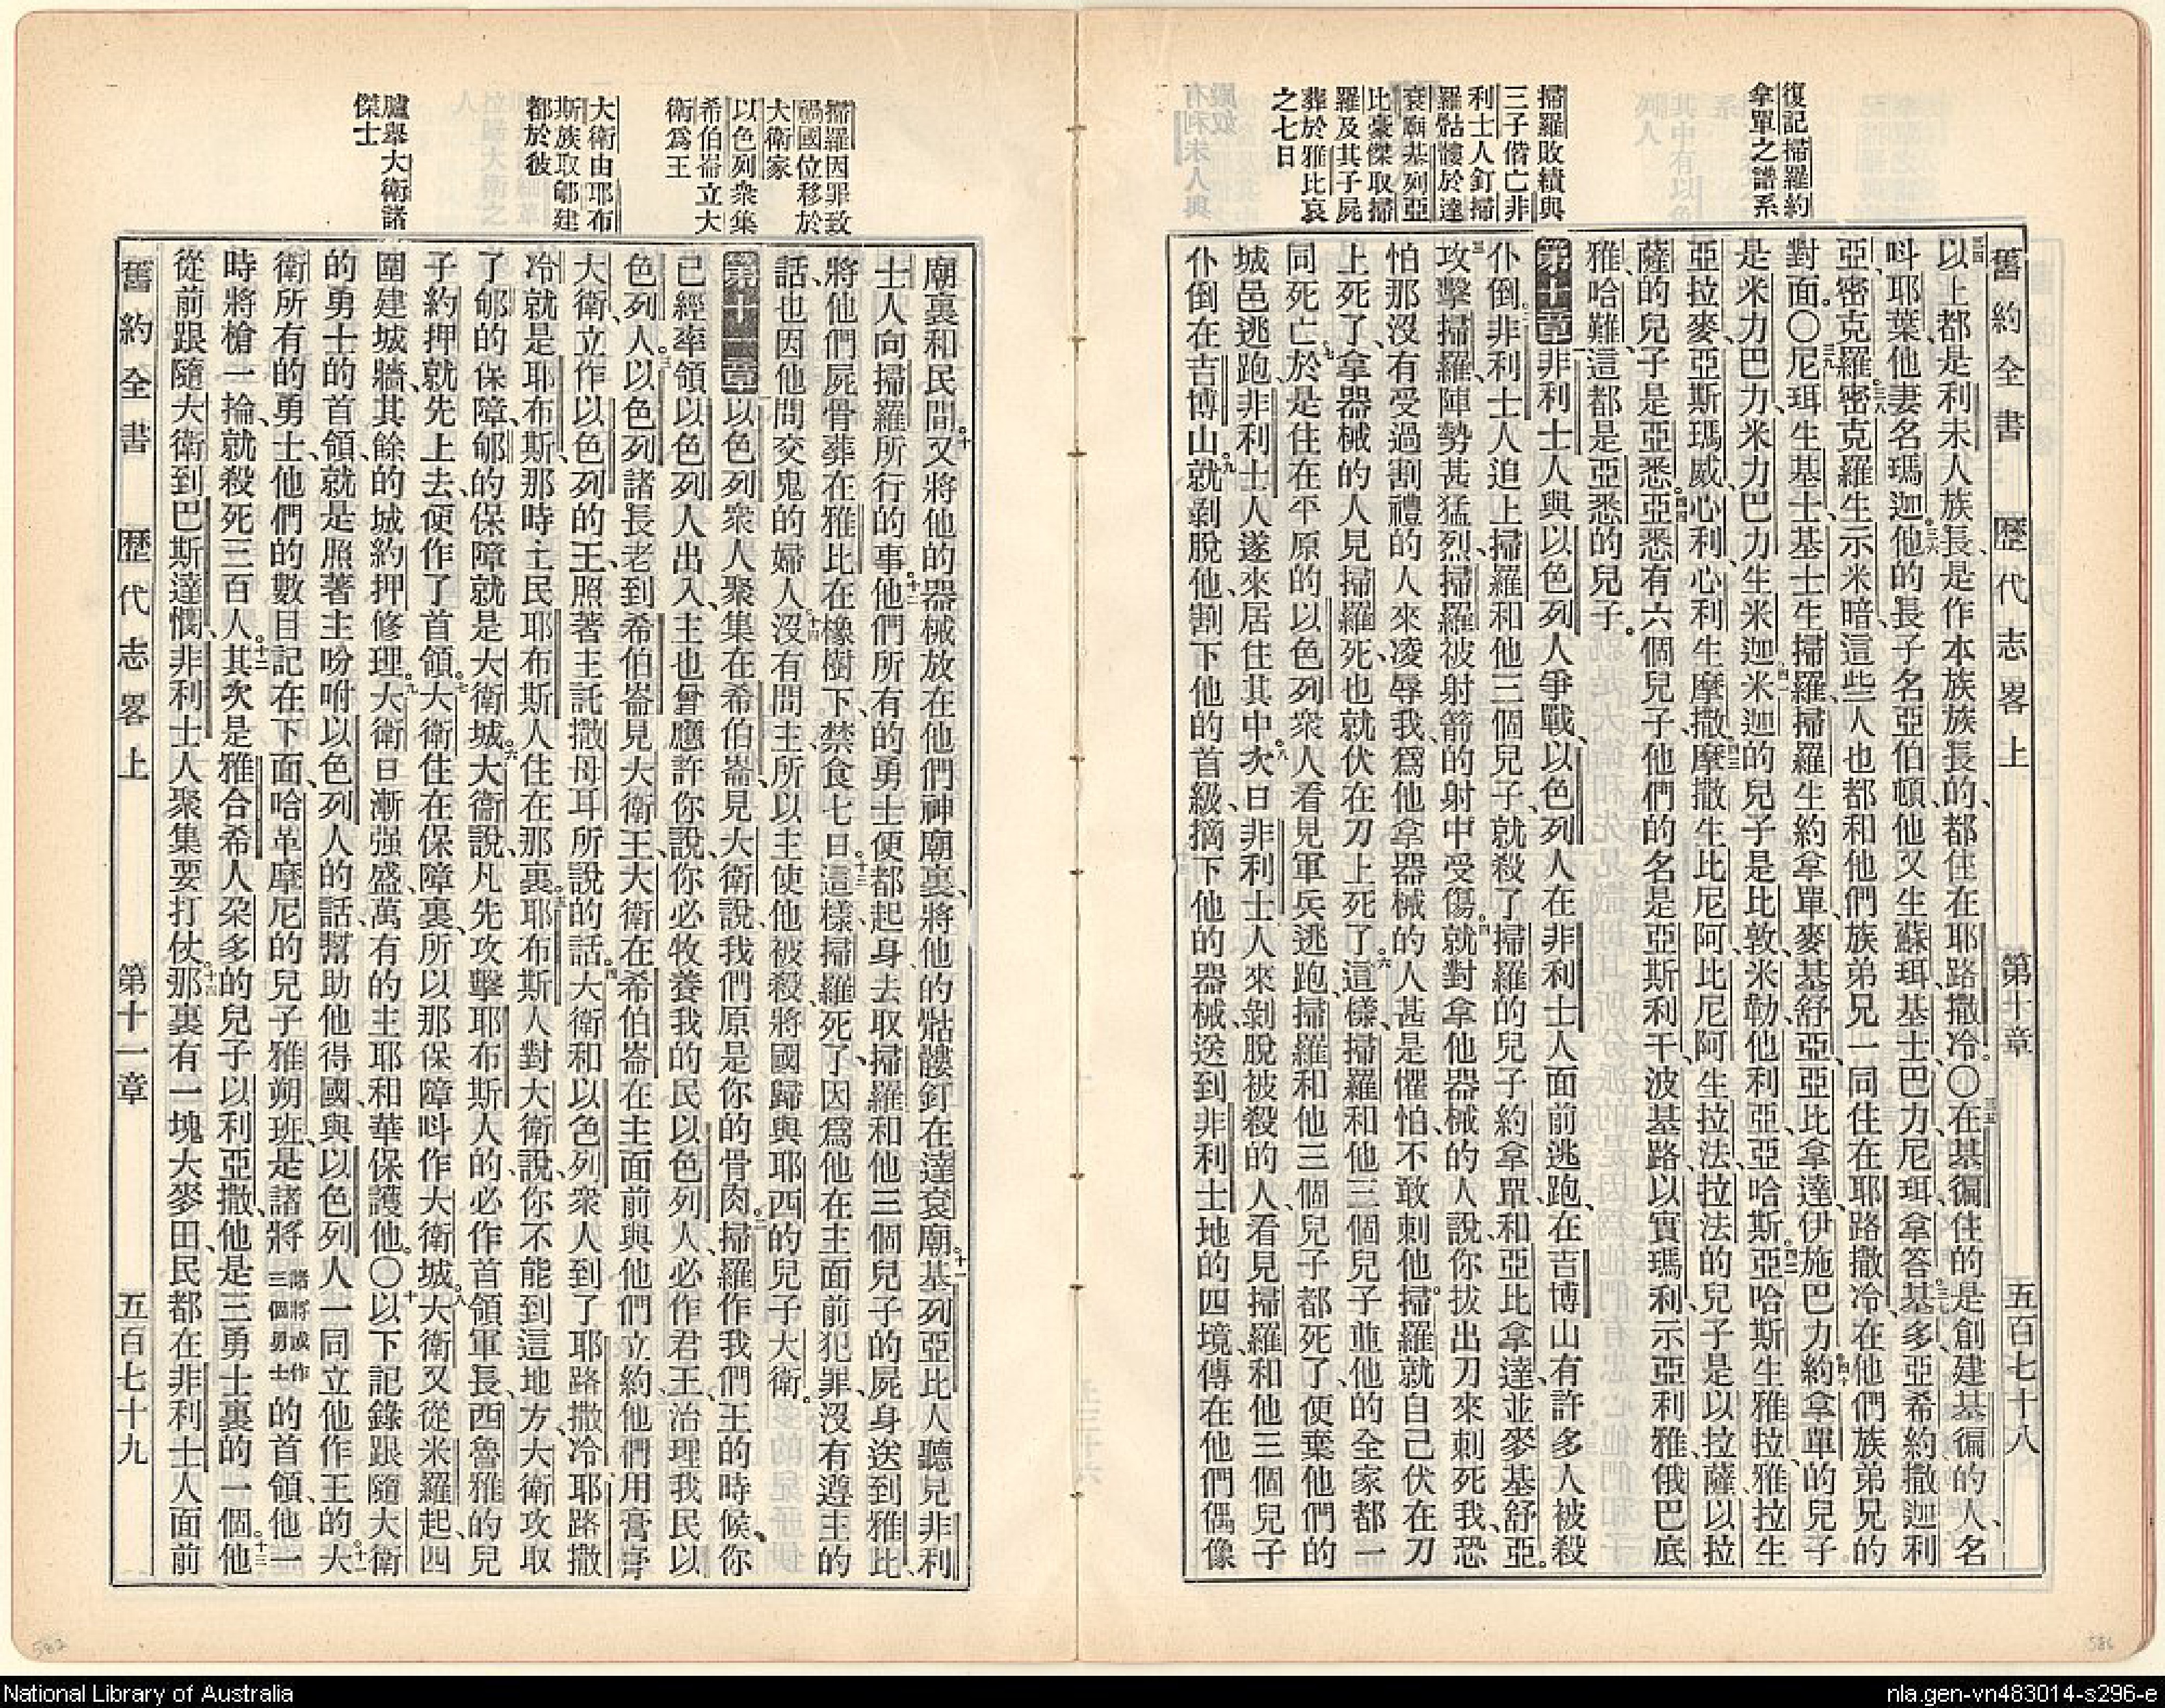 舊約全書 歷代志畧上 第十章 五百七十八
復記掃羅約
拿單之譜系
掃羅敗績與
三子偕亡非
利士人釘掃
羅骷髏於達
袞廟基列亞
比豪傑取掃
羅及其子屍
葬於雅比哀
之七日
以上都是利未人族長、是作本族族長的、都住在耶路撒冷。〇在基徧住的是創建基徧的人、名
呌耶葉、他妻名瑪迦。他的長子名亞伯頓、他又生蘇珥、基士、巴力、尼珥、拿答、基多、亞希約、撒迦利
亞、密克羅。密克羅生示米暗、這些人也都和他們族弟兄一同住在耶路撒冷、在他們族弟兄的
對面。〇尼珥生基士、基士生掃羅、掃羅生約拿單、麥基舒亞、亞比拿達、伊施巴力。約拿單的兒子
是米力巴力、米力巴力生米迦。米迦的兒子是比敦、米勒、他利亞、亞哈斯。亞哈斯生雅拉、雅拉生
亞拉麥、亞斯瑪威、心利、心利生摩撒。摩撒生比尼阿、比尼阿生拉法、拉法的兒子是以拉薩、以拉
薩的兒子是亞悉。亞悉有六個兒子、他們的名是亞斯利干、波基路、以實瑪利、示亞利雅、俄巴底
雅、哈難、這都是亞悉的兒子。
第十章 非利士人與以色列人爭戰、以色列人在非利士人面前逃跑、在吉博山有許多人被殺
仆倒。非利士人追上掃羅和他三個兒子、就殺了掃羅的兒子約拿單、和亞比拿達、並麥基舒亞。
攻擊掃羅、陣勢甚猛烈、掃羅被射箭的射中受傷。就對拿他器械的人說、你拔出刀來刺死我、恐
怕那沒有受過割禮的人來凌辱我、爲他拿器械的人甚是懼怕、不敢刺他。掃羅就自己伏在刀
上死了、拿器械的人見掃羅死、也就伏在刀上死了。這樣、掃羅和他三個兒子並他的全家都一
同死亡。於是住在平原的以色列衆人看見軍兵逃跑、掃羅和他三個兒子都死了、便棄他們的
城邑逃跑、非利士人遂來居住其中。次日、非利士人來剝脫被殺的人、看見掃羅和他三個兒子
仆倒在吉博山。就剝脫他、割下他的首級、摘下他的器械、送到非利士地的四境、傳在他們偶像
廟裏和民間。又將他的器械放在他們神廟裏、將他的骷髏釘在達袞廟。基列亞比人聽見非利
士人向掃羅所行的事。他們所有的勇士便都起身、去取掃羅和他三個兒子的屍身、送到雅比、
將他們屍骨葬在雅比在橡樹下、禁食七日。這樣、掃羅死了、因爲他在主面前犯罪、沒有遵主的
話、也因他問交鬼的婦人。沒有問主、所以主使他被殺、將國歸與耶西的兒子大衛。
第十一章 以色列衆人聚集在希伯崙、見大衛說、我們原是你的骨肉。掃羅作我們王的時候、你
已經率領以色列人出入、主也曾應許你說、你必牧養我的民以色列人、必作君王、治理我民以
色列人。以色列諸長老到希伯崙見大衛王、大衛在希伯崙在主面前與他們立約、他們用膏膏
大衛、立作以色列的王、照著主託撒母耳所說的話。大衛和以色列衆人到了耶路撒冷、耶路撒
冷就是耶布斯、那時土民耶布斯人住在那裏。耶布斯人對大衛說、你不能到這地方、大衛攻取
了郇的保障、郇的保障就是大衛城。大衛說、凡先攻擊耶布斯人的、必作首領軍長、西魯雅的兒
子約押就先上去、便作了首領。大衛住在保障裏、所以那保障呌作大衛城。大衛又從米羅起、四
圍建城牆、其餘的城約押修理。大衛日漸强盛、萬有的主耶和華保護他。〇以下記錄跟隨大衛
的勇士的首領、就是照著主吩咐以色列人的話、幫助他得國、與以色列人一同立他作王的。大
衛所有的勇士、他們的數目記在下面、哈革摩尼的兒子雅朔班、是諸將 諸將或作三個勇士 的首領、他一
時將槍一掄、就殺死三百人。其次是雅合希人朶多的兒子以利亞撒、他是三勇士裏的一個。他
從前跟隨大衛到巴斯達憫、非利士人聚集要打仗、那裏有一塊大麥田、民都在非利士人面前
掃羅因罪致
禍國位移於
大衛家
以色列衆集
希伯崙立大
衛爲王
大衛由耶布
斯族取郇建
都於彼
臚舉大衛諸
傑士
舊約全書 歷代志畧上 第十一章 五百七十九
582
586
National Library of Australia
nla.gen-vn483014-s296-e